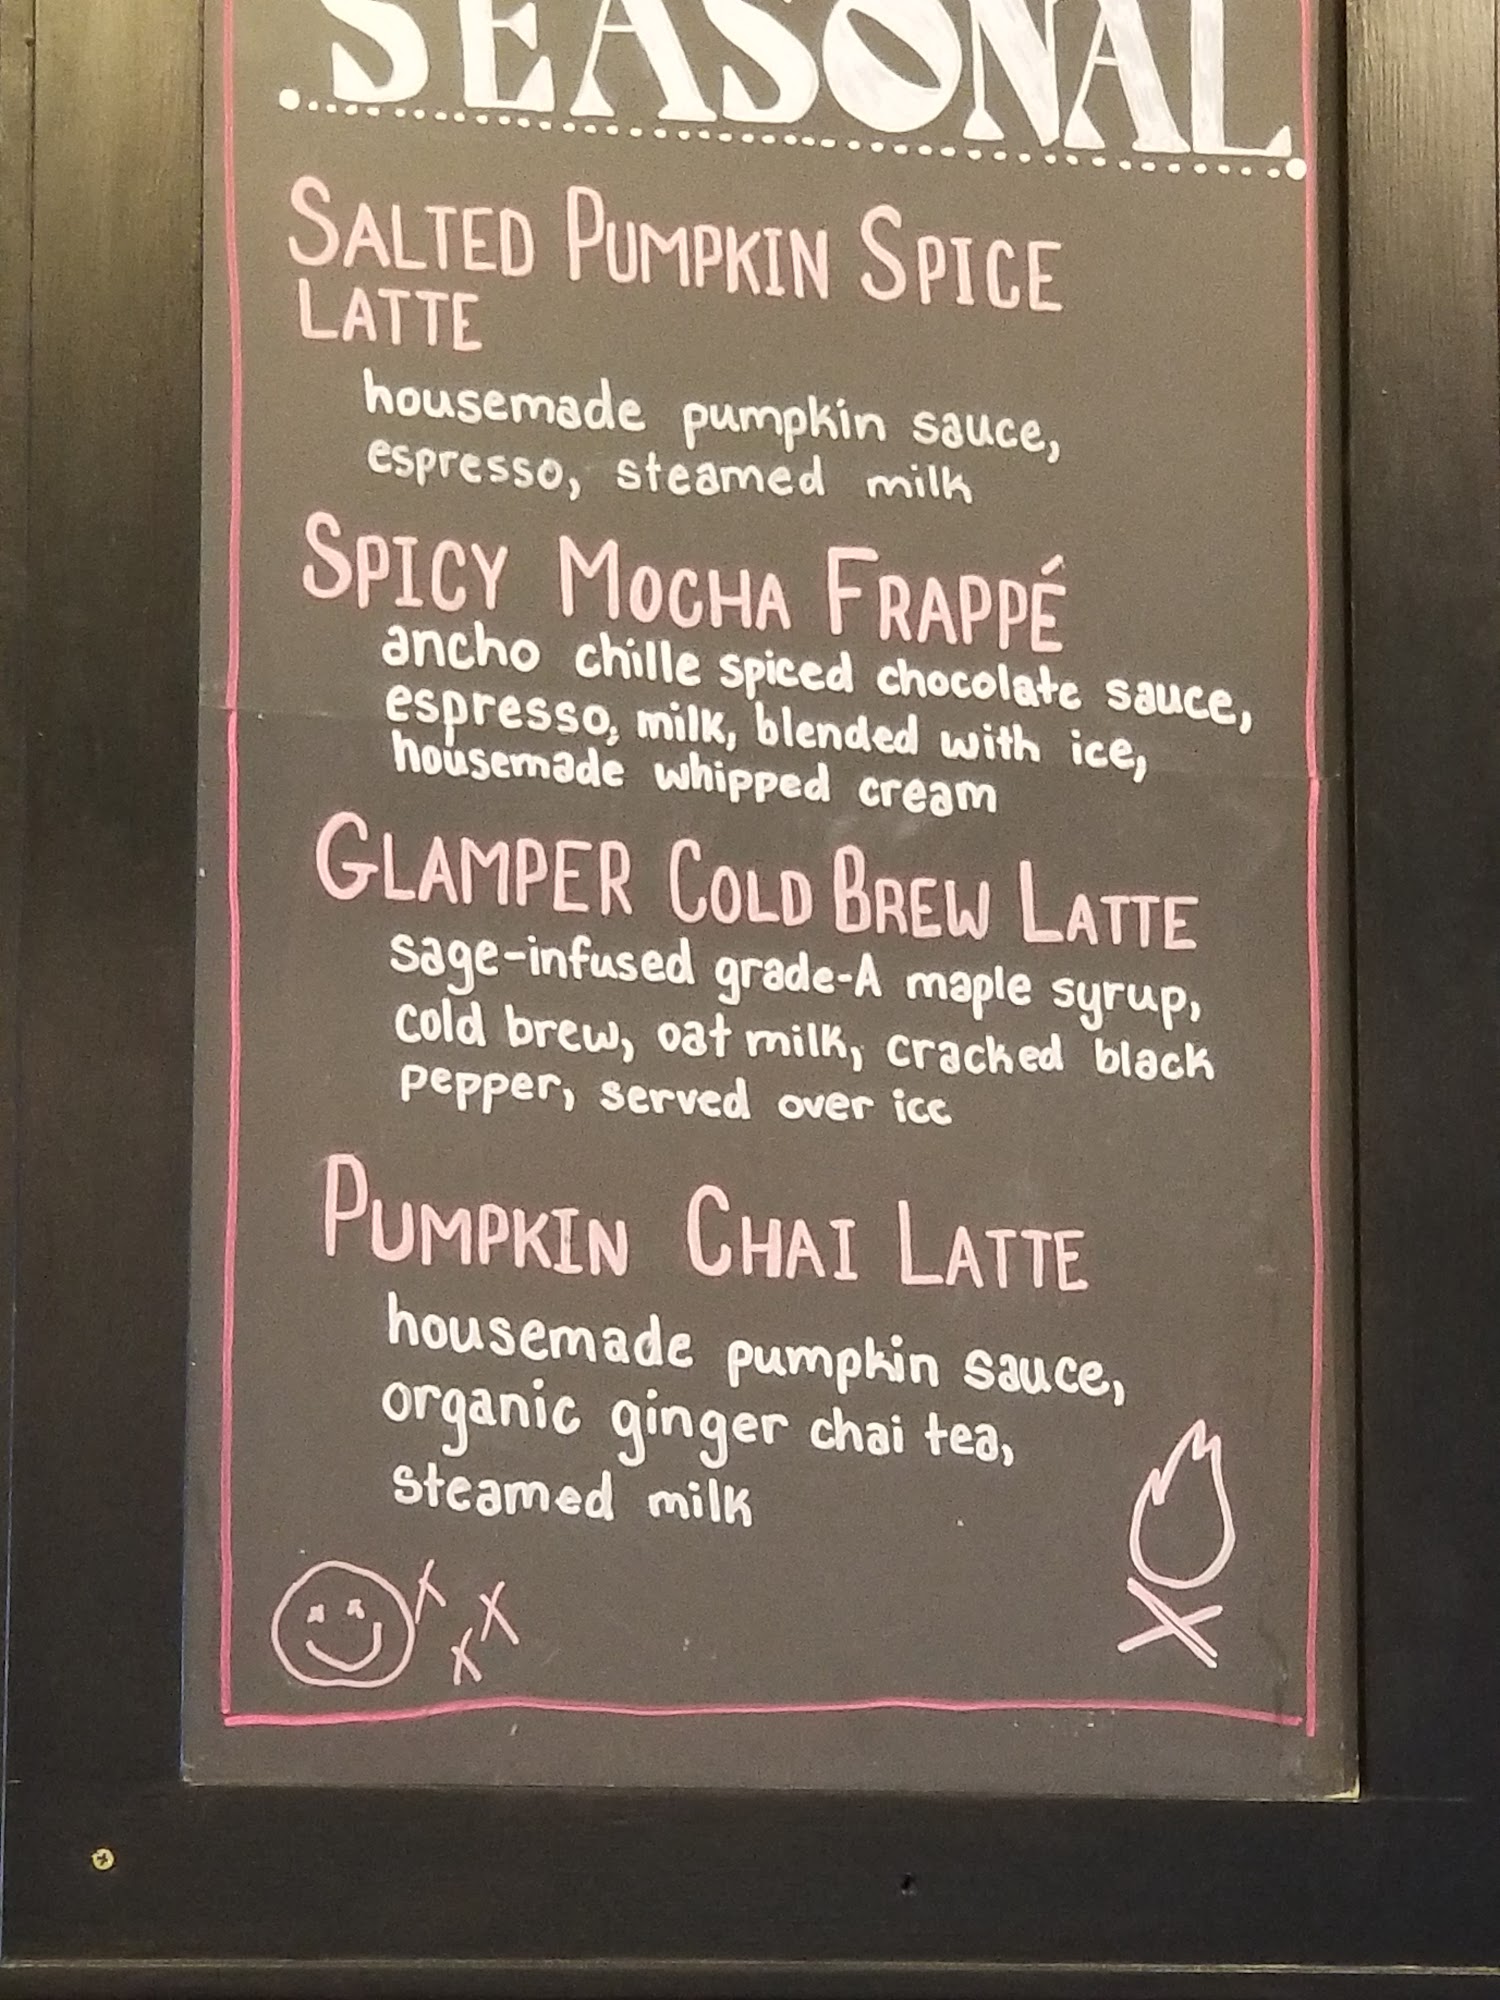 SEASONAL
SALTED PUMPKIN SPICE
LATTE
housemade pumpkin sauce,
espresso, steamed milk
SPICY MOCHA FRAPPÉ
ancho chille spiced chocolate sauce,
espresso, milk, blended with ice,
housemade whipped cream
GLAMPER COLD BREW LATTE
sage-infused grade-A maple syrup,
cold brew, oat milk, cracked black
pepper, served over ice
PUMPKIN CHAI LATTE
housemade pumpkin sauce,
organic ginger chai tea,
steamed milk
x x x